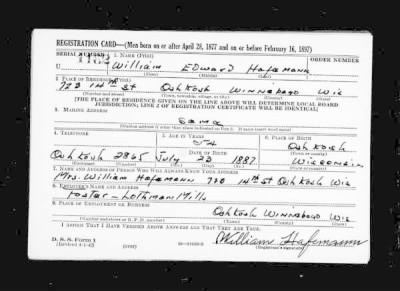 REGISTRATION CARD—(Men born on or after April 28, 1877 and on or before February 16, 1897)
SERIAL NUMBER 1. NAME (Print) ORDER NUMBER
U William Edward Hafemann
(First) (Middle) (Last)
2. PLACE OF RESIDENCE (Print)
723 14th St Oshkosh Winnebago Wis
(Number and street) (Town, township, village, or city) (County) (State)
[THE PLACE OF RESIDENCE GIVEN ON THE LINE ABOVE WILL DETERMINE LOCAL BOARD
JURISDICTION; LINE 2 OF REGISTRATION CERTIFICATE WILL BE IDENTICAL]
3. MAILING ADDRESS
Same
4. TELEPHONE 5. AGE IN YEARS 6. PLACE OF BIRTH
54 Oshkosh
DATE OF BIRTH
Oshkosh 2865 July 23 1887 Wisconsin
7. NAME AND ADDRESS OF PERSON WHO WILL ALWAYS KNOW YOUR ADDRESS
Mrs. William Hafemann 14th St Oshkosh Wis
8. EMPLOYER'S NAME AND ADDRESS
Foster-Lothman Mills
9. PLACE OF EMPLOYMENT OR BUSINESS
Oshkosh Winnebago Wis
(Number and street or R. F. D. number) (Town) (County) (State)
I AFFIRM THAT I HAVE VERIFIED ABOVE ANSWERS AND THAT THEY ARE TRUE.
D. S. S. Form 1
(Revised 4-1-42) (over) William Hafemann
(Registrant's signature)